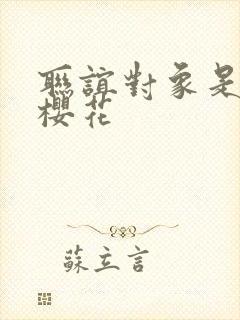 聯誼對象是
櫻花
蘇立言